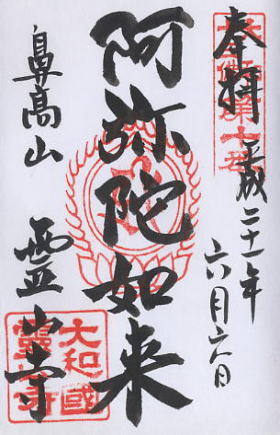 奉拝
平成二十一年
六月六日
阿弥陀如来
鼻高山
霊山寺
大和國
靈山寺